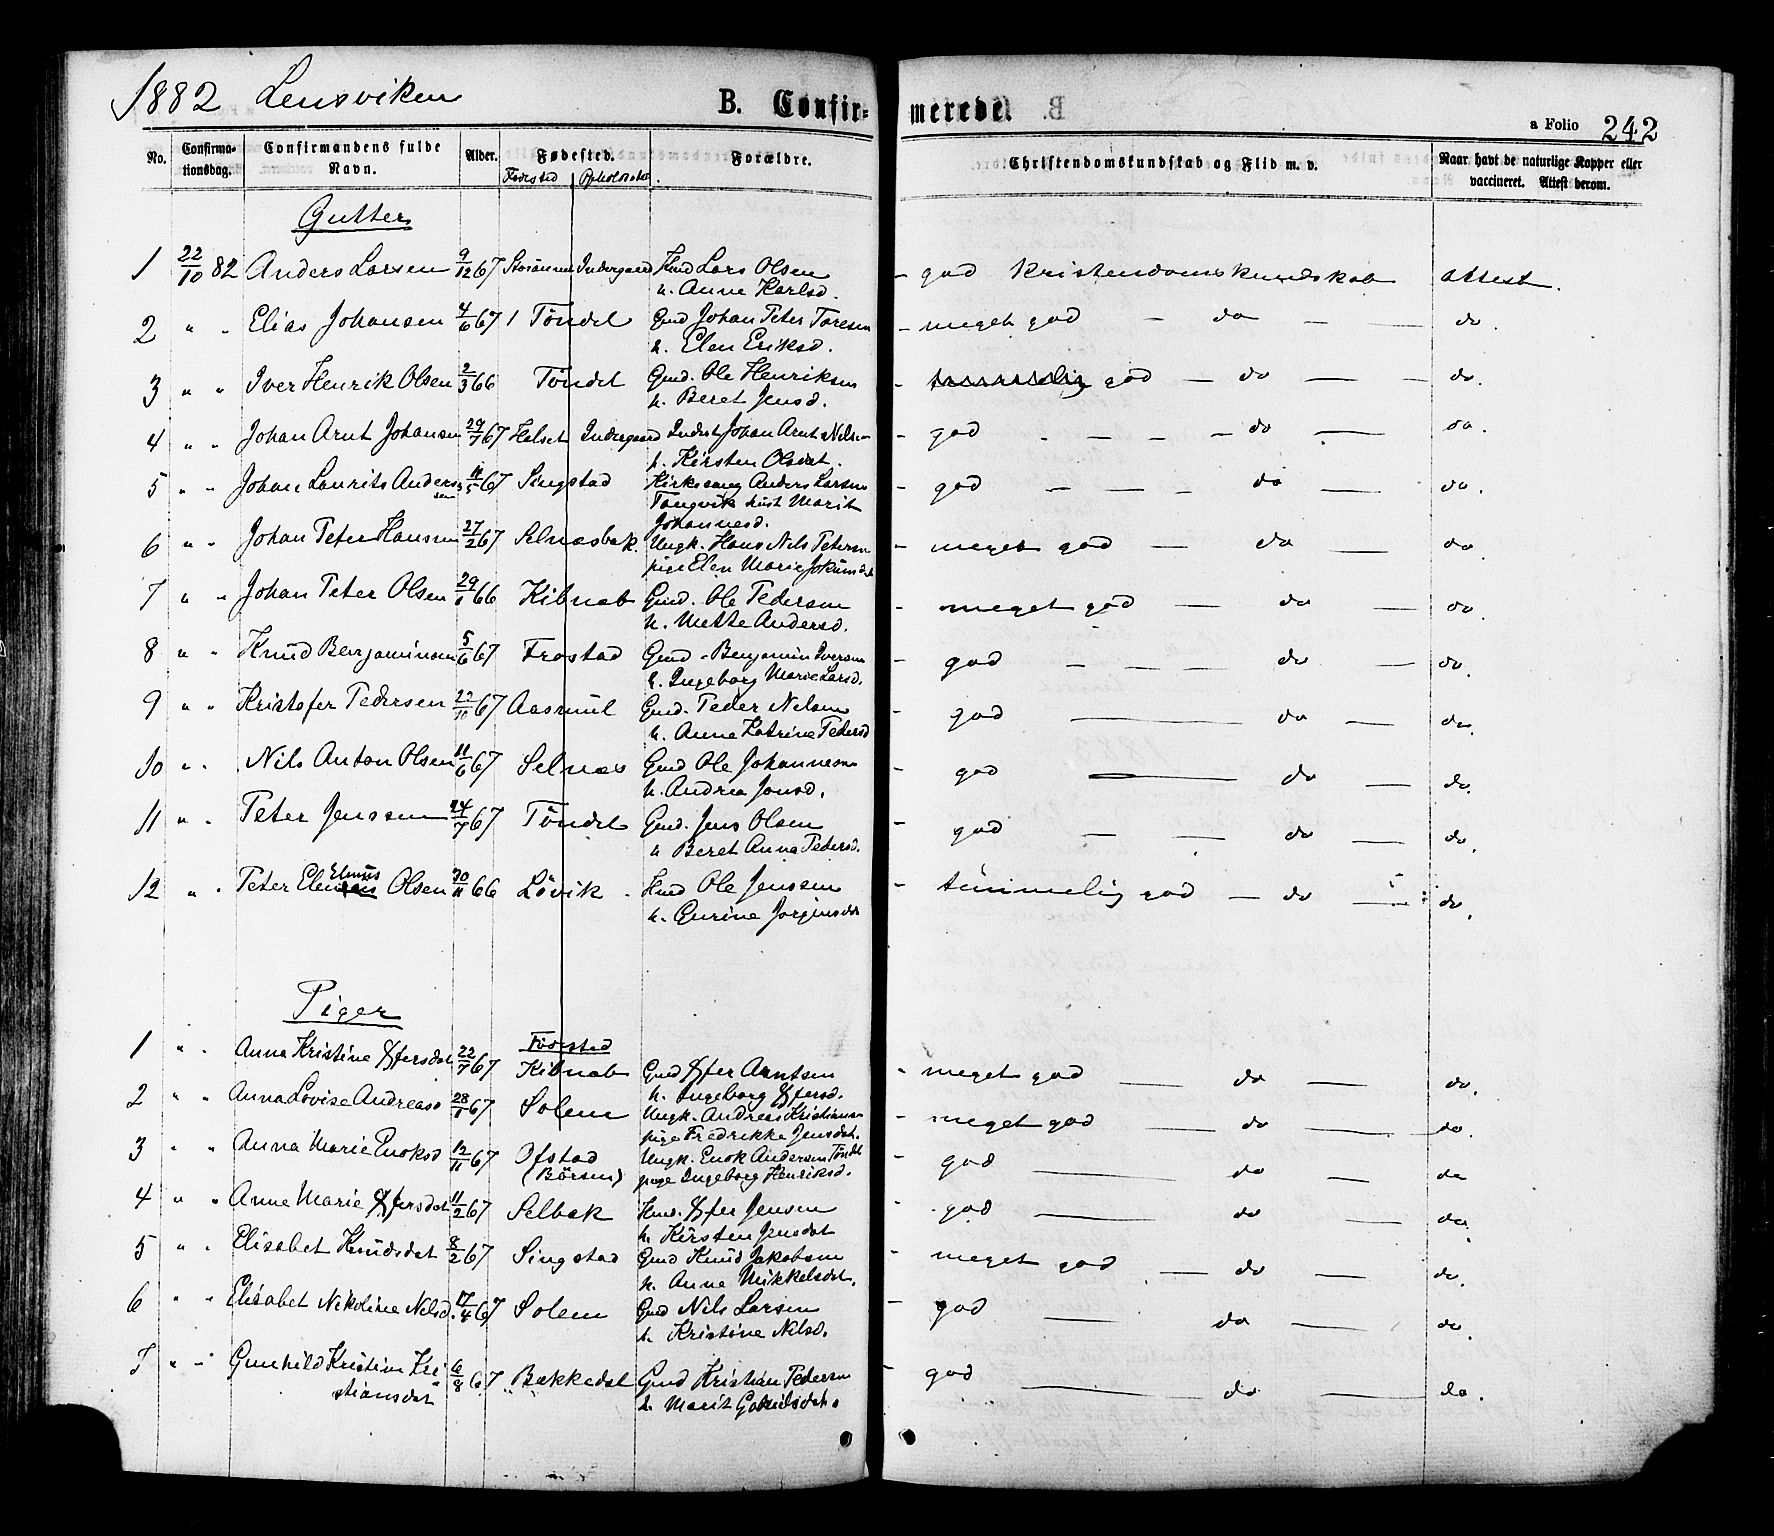 1882 Lensviken B. Confir- merede. a Folio 242
No. Confirma-tionsdag. Confirmandens fulde Navn. Alder. Fødested. Forældre. Christendomskundskab og Flid m. v. Naar havt de naturlige Kopper eller vaccineret. Attest derom.
Födested Opholdssted
Gutter
1 22/10 82 Anders Larsen 9/12 67 Indergaard Lars Olsen - god Kristendomskundskab attest.
h. Anne Karlsd.
2 " " Elias Johansen 4/6 67 Töndel Gmd Johan Peter Toresen - meget god — do — — do.
h. Elen Eriksd.
3 " " Iver Henrik Olsen 2/3 66 Töndel Gmd. Ole Henriksen - god — do — — do.
h. Beret Jensd.
4 " " Johan Arnt Johansen 29/7 67 Helset Indergaard Inderst Johan Arnt Nilsen - god — — — do — do.
h. Kirsten Olsdat.
5 " " Johan Laurits Andersen 11/5 67 Singstad Kirkesang Anders Larsen - god — — do — do.
Tangvik hust Marit
Johannesd.
6 " " Johan Peter Hansen 27/2 67 Selnæsbak. Ungk. Hans Nils Petersen - meget god — do — do
pige Elen Marie
7 " " Johan Peter Olsen 29/1 66 Kibnab Gmd. Ole Pedersen - meget god — do — do
h. Mette Andersd.
8 " " Knud Benjaminsen 5/6 67 Frostad Gmd. Benjamin Iversen - god — — do — do.
h. Ingeborg Marie Larsd.
9 " " Kristofer Pedersen 22/10 67 Aasmul Gmd. Peder Nelsen - god — do — do.
h. Anne Katrine Pedersd
10 " " Nils Anton Olsen 11/6 67 Selnæs Gmd Ole Johannesen - god — do — do.
h. Andrea Jonsd.
11 " " Peter Jenssen 24/7 67 Töndel Gmd. Jens Olsen - god — — do — do.
h Beret Anna Pedersd.
12 " " Peter Elenius Olsen 30/11 66 Lövik Hmd Ole Jenssen - temmelig god — do — do.
h. Gurine Jörginsdat
Piger
1 " " Anna Kristine 22/7 67 Födested
Kibnab Gmd Arntsen - meget god — do — do.
h. Ingeborg
2 " " Anna Lovise Andreasd 28/1 67 Solem Ungk. Andreas Kristiansen - meget god — do — do.
pige Fredrikke Jensdat.
3 " " Anna Marie Enoksd 12/11 67 Ofstad Ungk. Enok Andersen Töndel god — do — do
(Börsen) pige Ingeborg Henriksd.
4 " " Anne Marie 11/2 67 Selbek Hmd. Jensen - god — do — do.
h. Kirsten Jensdat
5 " " Elisabet Knudsdat 8/2 67 Singstad Gmd Knud Jakobsen - meget god — do — do.
h. Anne Mikkelsdat.
6 " " Elisabet Nikoline Nilsd. 17/4 67 Solem Gmd Nils Larsen - god — do — do.
h. Kristine Nilsd.
7 " " Gunhild Kristine Kri- 6/8 67 Bekkedal Gmd Kristian Pedersen - god — do — do.
stiansdat h. Marit